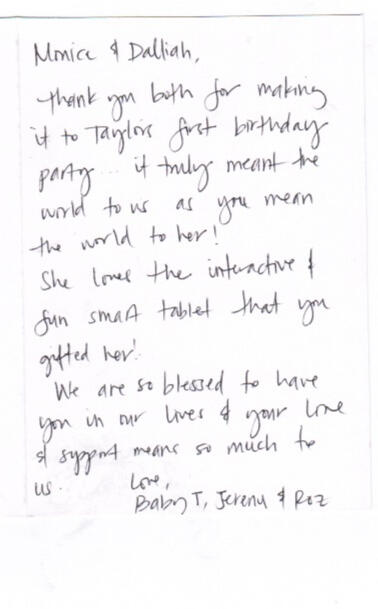 Monica & Dalliah,
thank you both for making
it to Taylors first birthday
party... it truly meant the
world to us as you mean
the world to her!
She loves the interactive &
fun smart tablet that you
gifted her!
We are so blessed to have
you in our lives & your love
& support means so much to
us.
Love,
Baby T, Jeremy & Roz